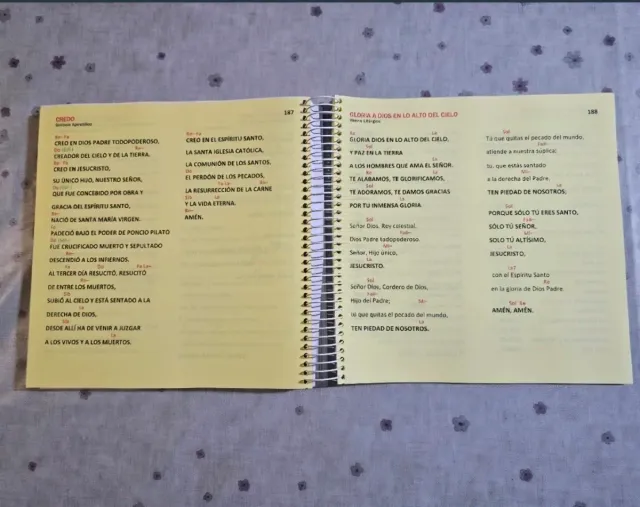 CREDO
187
CREO EN DIOS PADRE TODOPODEROSO,
CREADOR DEL CIELO Y DE LA TIERRA.
CREO EN JESUCRISTO,
SU ÚNICO HIJO, NUESTRO SEÑOR,
QUE FUE CONCEBIDO POR OBRA Y
GRACIA DEL ESPÍRITU SANTO,
NACIÓ DE SANTA MARÍA VIRGEN.
PADECIÓ BAJO EL PODER DE PONCIO PILATO
FUE CRUCIFICADO MUERTO Y SEPULTADO
DESCENDIÓ A LOS INFIERNOS.
AL TERCER DÍA RESUCITÓ, RESUCITÓ
DE ENTRE LOS MUERTOS,
SUBIÓ AL CIELO Y ESTÁ SENTADO A LA
DERECHA DE DIOS,
DESDE ALLÍ HA DE VENIR A JUZGAR
A LOS VIVOS Y A LOS MUERTOS.
CREO EN EL ESPÍRITU SANTO,
LA SANTA IGLESIA CATÓLICA,
LA COMUNIÓN DE LOS SANTOS,
EL PERDÓN DE LOS PECADOS,
LA RESURRECCIÓN DE LA CARNE
Y LA VIDA ETERNA.
AMÉN.
GLORIA A DIOS EN LO ALTO DEL CIELO
188
GLORIA DIOS EN LO ALTO DEL CIELO,
Y PAZ EN LA TIERRA
A LOS HOMBRES QUE AMA EL SEÑOR.
TE ALABAMOS, TE GLORIFICAMOS,
TE ADORAMOS, TE DAMOS GRACIAS
POR TU INMENSA GLORIA
Señor Dios, Rey celestial,
Dios Padre todopoderoso.
Señor, Hijo único,
JESUCRISTO.
Señor Dios, Cordero de Dios,
Hijo del Padre;
tú que quitas el pecado del mundo,
TEN PIEDAD DE NOSOTROS.
Tú que quitas el pecado del mundo,
atiende a nuestra súplica;
tú, que estás sentado
a la derecha del Padre,
TEN PIEDAD DE NOSOTROS;
PORQUE SÓLO TÚ ERES SANTO,
SÓLO TÚ SEÑOR,
SÓLO TÚ ALTÍSIMO,
JESUCRISTO,
con el Espíritu Santo
en la gloria de Dios Padre.
AMÉN, AMÉN.